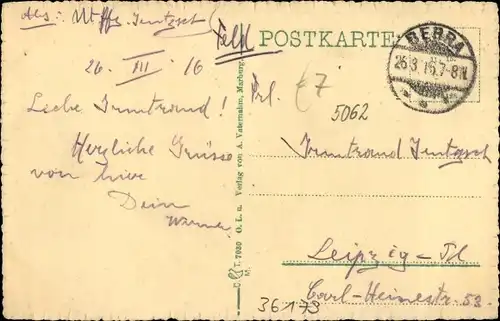 Abs: Uffz. Jentzsch
Feld
POSTKARTE
BEBRA
26.3.16.7-8N.
26 III 16
Liebe Irmtraud!
Frl.
£7
5062
Irmtraud Jentzsch
Herzliche Grüsse
von hier
Dein
Werner
Leipzig-
Carl-Heinestr. 53
36173
Verlag von A. Vaternahm, Marburg. O. L. u.
T. 7030
M.